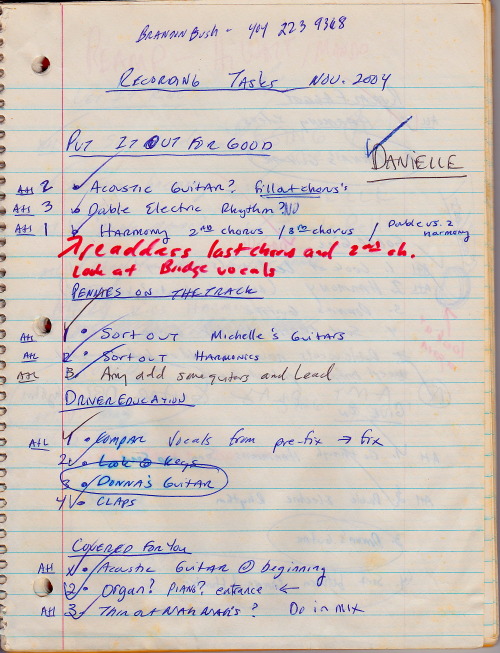 BRANDON BUSH - 404 223 9368
RECORDING TASKS NOV. 2004
PUT IT OUT FOR GOOD
DANIELLE
AH 2 ACOUSTIC GUITAR? fill at chorus's
AH 3 Double Electric Rhythm? NO
AH 1 HARMONY 2nd CHORUS / 3rd CHORUS / Double vs. 2 harmony
last chorus and 2nd ch.
Look at Bridge vocals
PENNIES ON THE TRACK
AH 1 SORT OUT Michelle's Guitars
AH 2 SORT OUT HARMONICS
3 Amy add some guitars and Lead
DRIVER EDUCATION
1 COMPAR Vocals from pre-fix → fix
2 Look @ Keys
3 DONNA'S GUITAR
4 CLAPS
COVERED FOR YOU
AH Acoustic Guitar @ beginning
2 Organ? PIANO? entrance ←
AH 3 NAH NAH'S? Do in mix